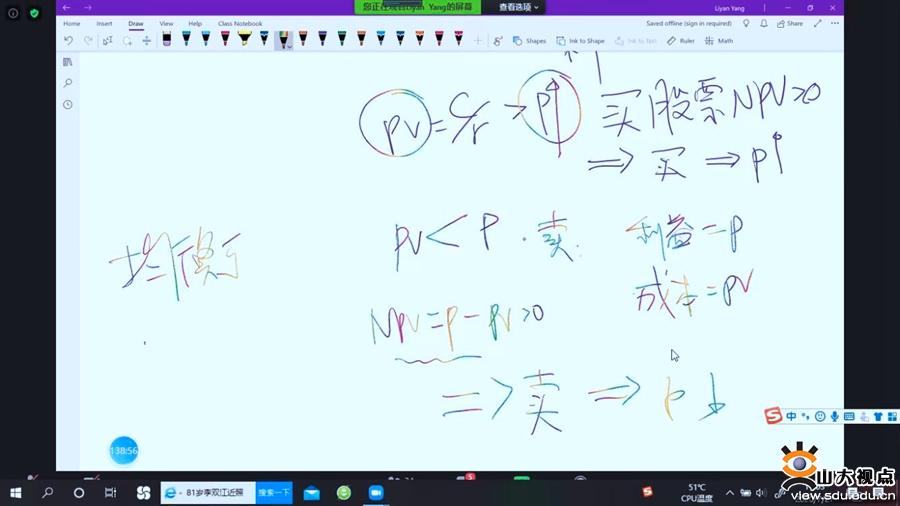 您正在观看Liyan Yang的屏幕
查看选项
Liyan Yang
Home Insert Draw View Help Class Notebook
Saved offline (sign in required)
Share
Shapes
Ink to Shape
Ink to Text
Ruler
Math
PV = C/r > P↑
买股票 NPV>0
⇒ 买 ⇒ P↑
PV < P · 卖
利益 = P
均衡
成本 = PV
NPV = P - PV > 0
⇒ 卖 ⇒ P↓
中
138:56
81岁李双江近照
搜索一下
51℃
CPU温度
山大视点
view.sdu.edu.cn